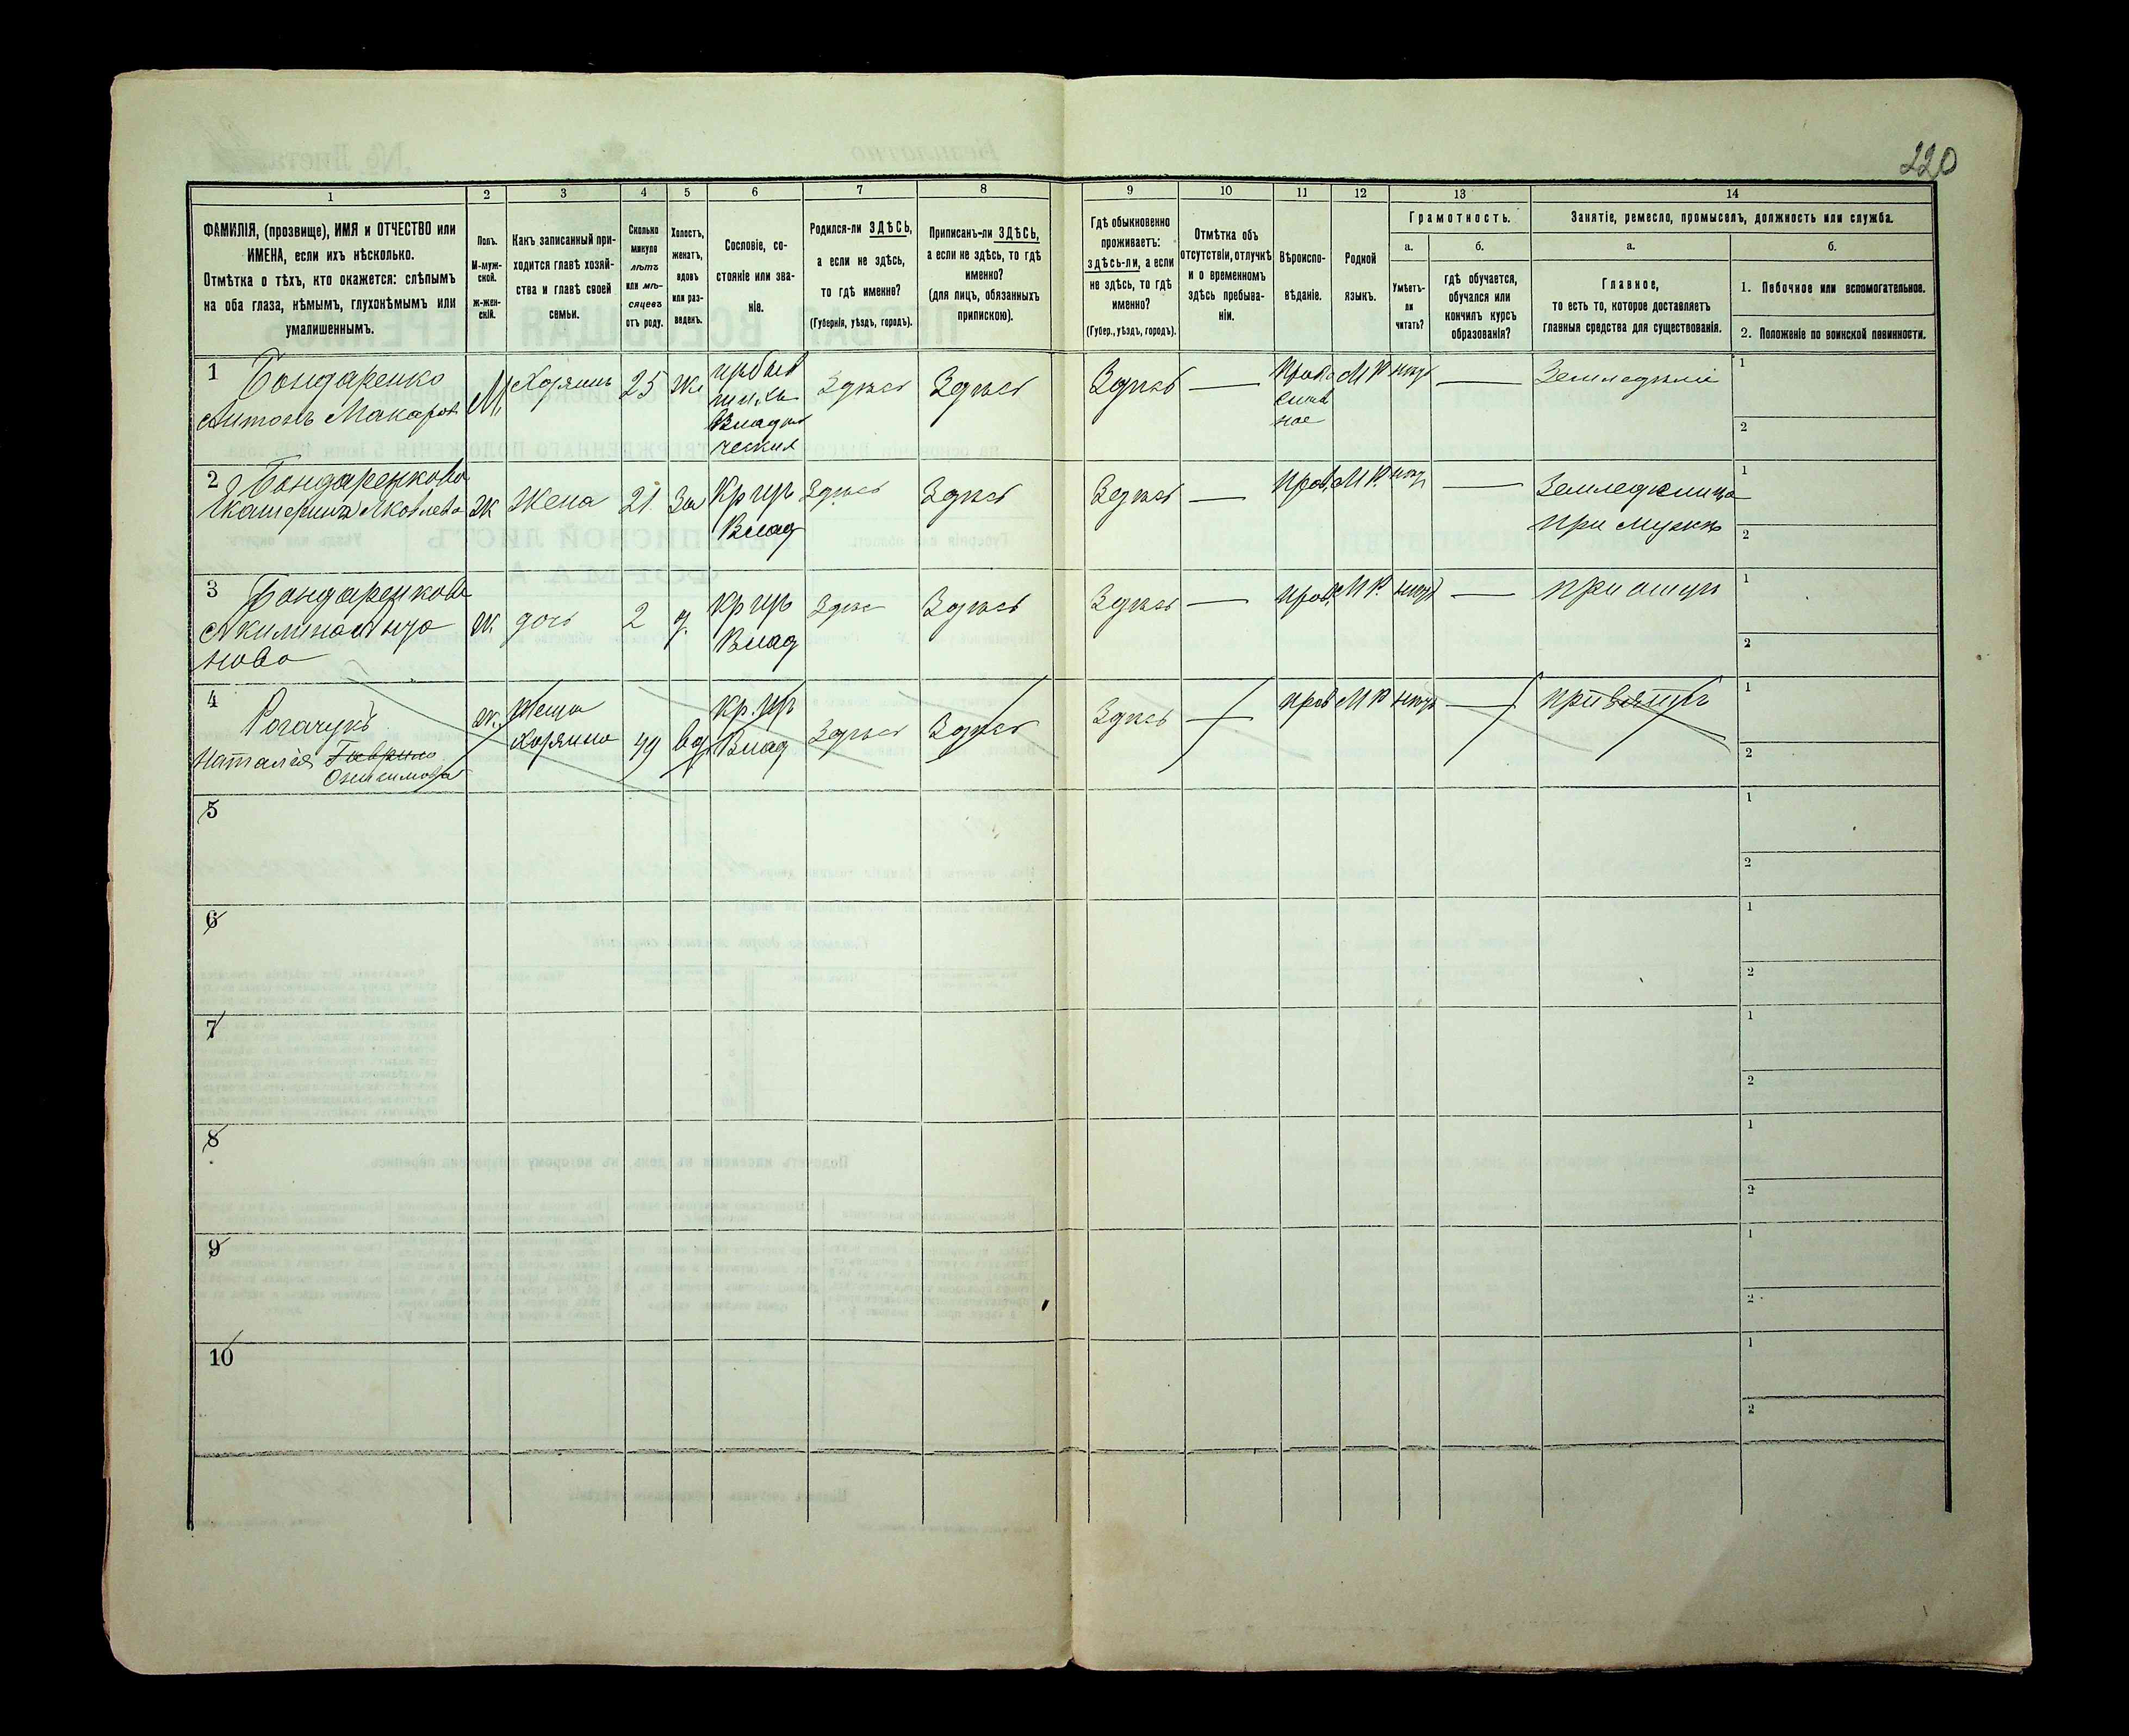 220
1
2
3
4
5
6
7
8
9
10
11
12
13
14
ФАМИЛІЯ, (прозвище), ИМЯ и ОТЧЕСТВО или
ИМЕНА, если ихъ нѣсколько.
Отмѣтка о тѣхъ, кто окажется: слѣпымъ
на оба глаза, нѣмымъ, глухонѣмымъ или
умалишеннымъ.
Полъ.
М-муж-
ской.
ж-жен-
скій.
Какъ записанный при-
ходится главѣ хозяй-
ства и главѣ своей
семьи.
Сколько
минуло
лѣтъ
или мѣ-
сяцевъ
отъ роду.
Холостъ,
женатъ,
вдовъ
или раз-
веденъ.
Сословіе, со-
стояніе или зва-
ніе.
Родился-ли ЗДѢСЬ,
а если не здѣсь,
то гдѣ именно?
(Губернія, уѣздъ, городъ).
Приписанъ-ли ЗДѢСЬ,
а если не здѣсь, то гдѣ
именно?
(для лицъ, обязанныхъ
припискою).
Гдѣ обыкновенно
проживаетъ:
здѣсь-ли, а если
не здѣсь, то гдѣ
именно?
(Губер., уѣздъ, городъ).
Отмѣтка объ
отсутствіи, отлучкѣ
и о временномъ
здѣсь пребыва-
ніи.
Вѣроиспо-
вѣданіе.
Родной
языкъ.
Грамотность.
а.
Умѣетъ-
ли
читать?
б.
гдѣ обучается,
обучался или
кончилъ курсъ
образованія?
Занятіе, ремесло, промыселъ, должность или служба.
а.
Главное,
то есть то, которое доставляетъ
главныя средства для существованія.
б.
1. Побочное или вспомогательное.
2. Положеніе по воинской повинности.
1 Бондаренко
Антонъ Макаров
М Хозяинъ 25 Же
Здѣсь Здѣсь Здѣсь — М Р нѣтъ — Земледѣліе
1
2
2 Бондаренкова
Екатерина Яковлева
Ж Жена 21 За Кр
Влад
Здѣсь Здѣсь Здѣсь — прав. М Р. нѣт —
Земледѣлица
при мужѣ
1
2
3 Бондаренкова
Акилина Анто
нова
ж. дочь 2 д. кр
Влад
Здѣс Здѣсь Здѣсь — прав. М Р нѣт — при отцѣ
1
2
4 Рогачукъ
Наталія Гаврило
Онисимова
ж. Теща
хозяина 49 вд Кр.
Влад
Здѣсь Здѣсь Здѣсь — прав М Р нѣтъ — при зятѣ
1
2
5
1
2
6
1
2
7
1
2
8
1
2
9
1
2
10
1
2